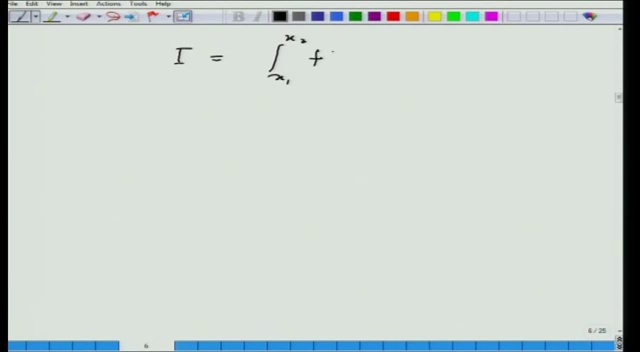 File Edit View Insert Actions Tools Help
B I
I = ∫_{x_1}^{x_2} f
6 / 25
6